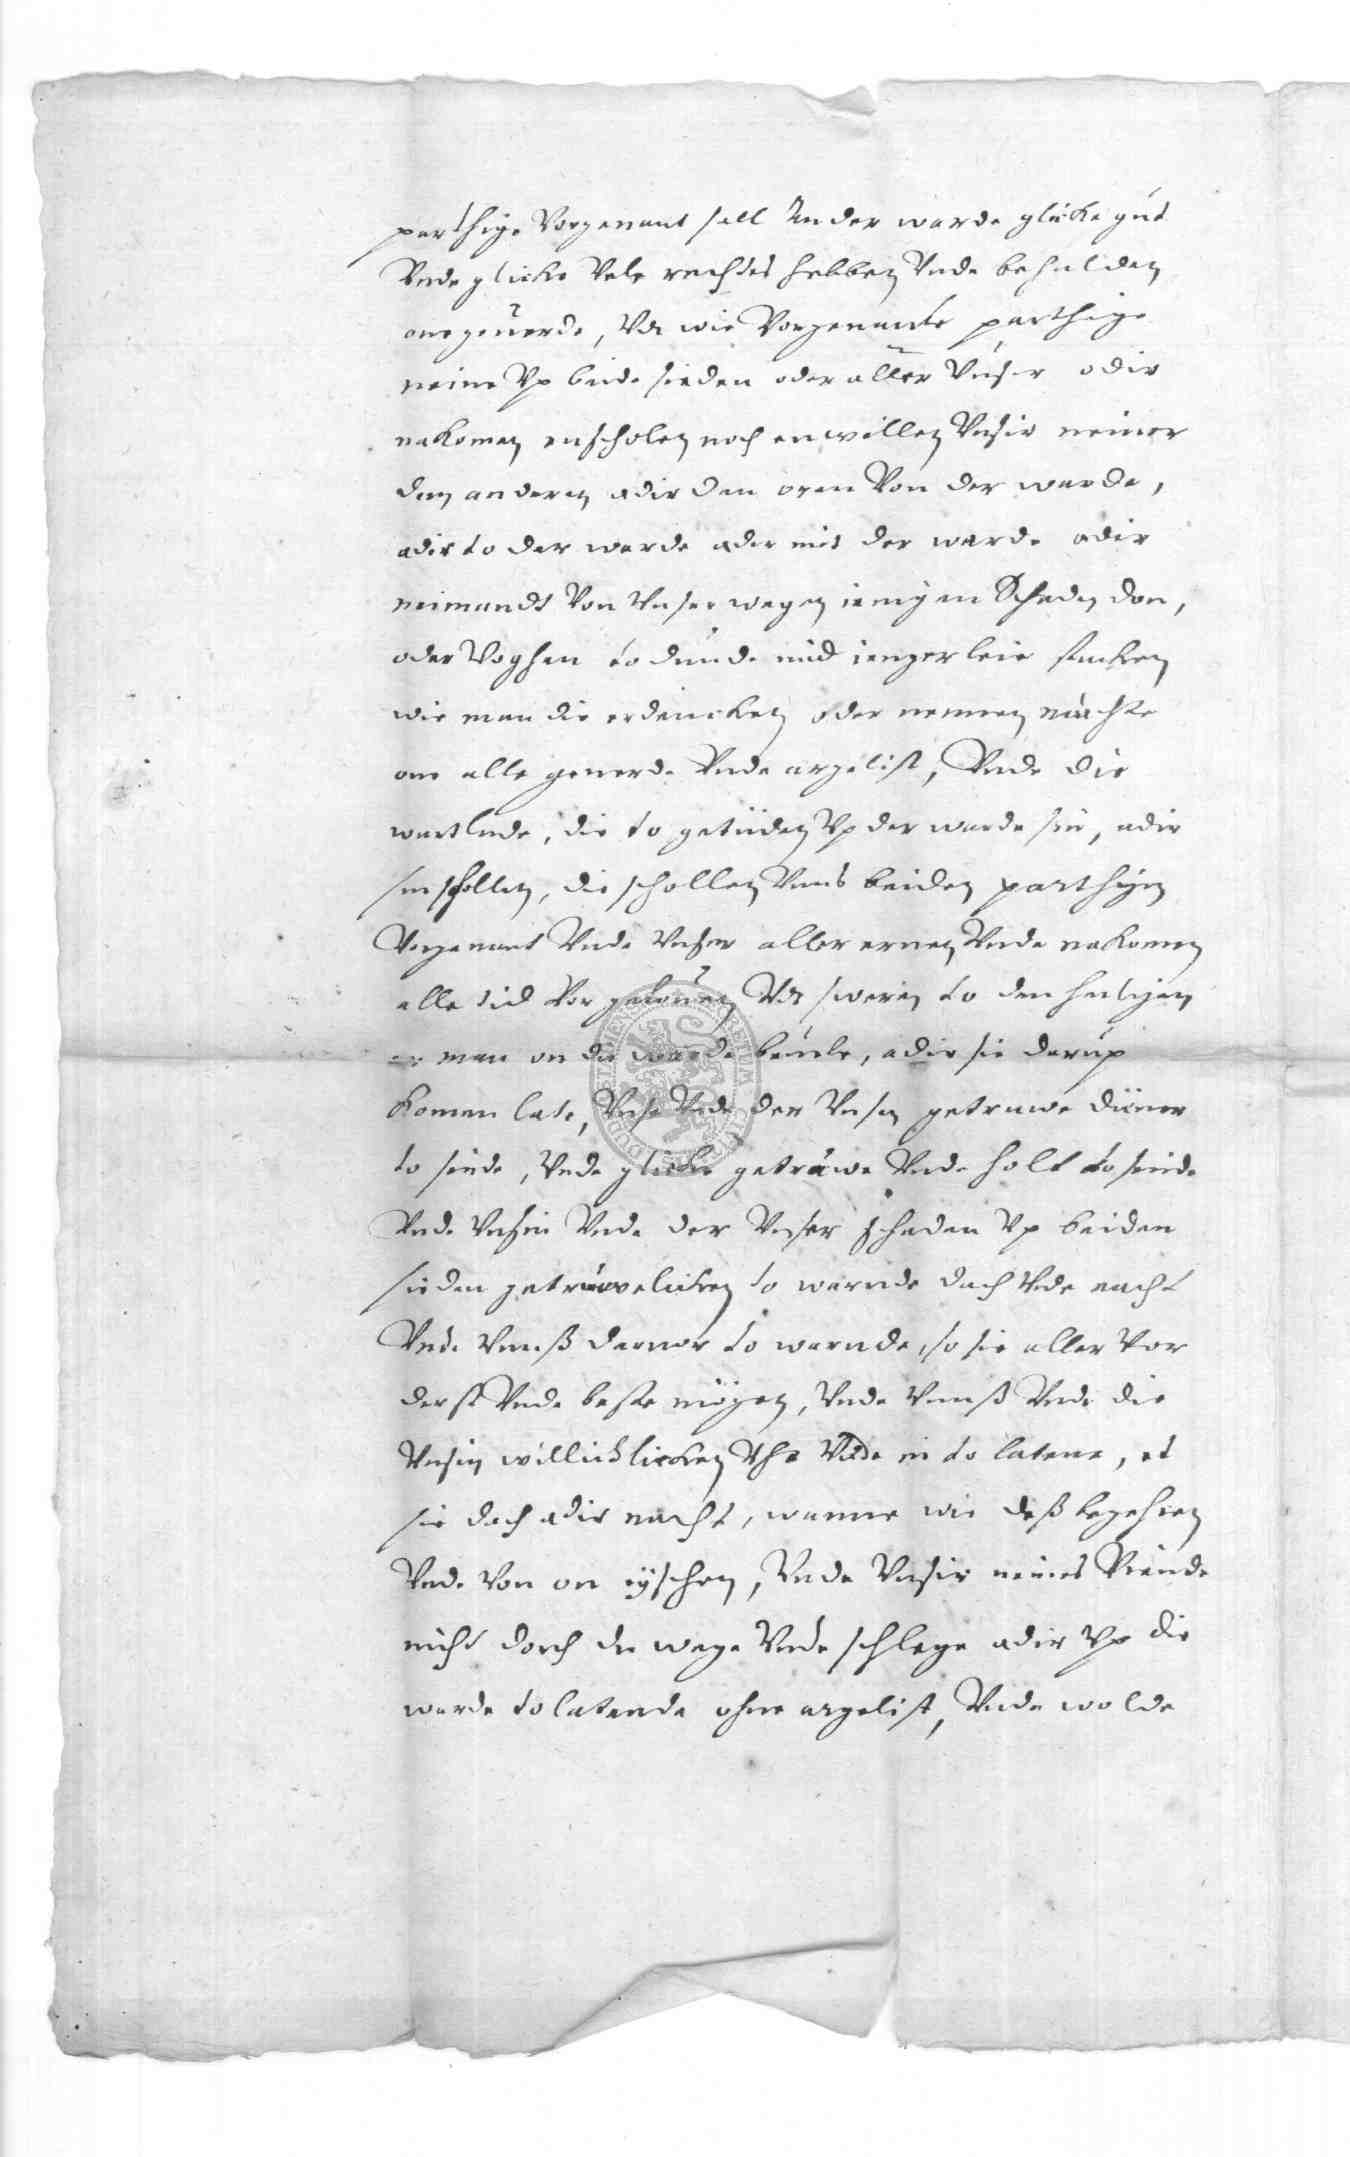 parthige Vorgenant sall An der warde glicke gut
Vnde glicke Vele rechtes hebben Vnde behalden
ane geuerde, Vn wie Vorgenante parthige
neine Vp beide sieden oder aller Vnser odir
nakomen enscholen noch enwillen Vnsir neiner
dem anderen adir den oren Von der warde,
adir to der warde ader mit der warde adir
neimandt Von Vnser wegen ienigen Schaden don,
oder Voghen to dunde mid iengerleie sacken
wie man die erdencken oder nennen mochte
ane alle geuerde Vnde argelist, Vnde die
wartlude, die to getiiden Vp der warde sin, adir
sin schollen, die schollen Vnns beiden parthijen
Vorgenant Vnde Vnser aller eruen Vnde nakomen
alle tid Vor gelouen Vn sweren to den heiligen
er man on die warde beuele, adir sie darup
komen late, Vnse Vnde der Vnsen getruwe diener
to sinde, Vnde glicke getruwe Vnde holt to sinde
Vnde Vnsen Vnde der Vnser schaden Vp beiden
sieden getruwelicken to warnde dach Vnde nacht
Vnde Vnnß daruor to warnde, so sie aller Vor
derst Vnde beste mögen, Vnde Vnnß Vnde die
Vnsen willichlicken Vth Vnde in to latene, et
sie dach adir nacht, wanne wie deß begehren
Vnde Von on eyschen, Vnde Vnsir neines Viende
nicht dorch die wege Vnde schlege adir Vp die
warde to latende ohne argelist, Vnde wolde
SECRETUM CIVITATIS